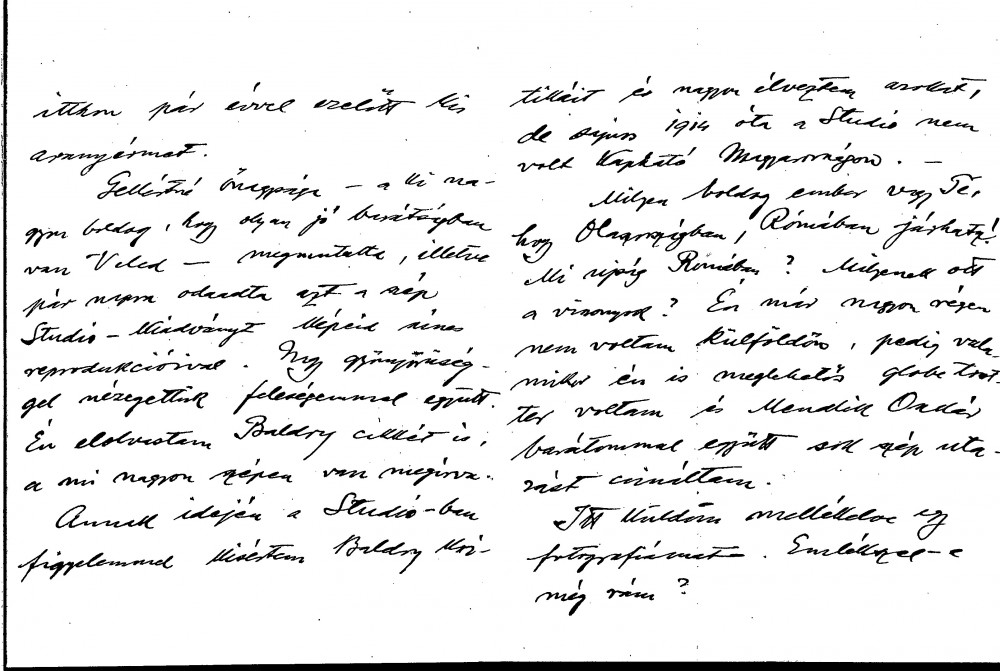 itthon pár évvel ezelőtt kis
aranyérmet.
Gellértné őnagysága – a ki na-
gyon boldog, hogy olyan jó barátságban
van Veled – megmutatta, illetve
pár napra odaadta azt a szép
Studio-kiadványt képeid színes
reprodukcióival. Nagy gyönyörűség-
gel nézegettük feleségemmel együtt.
Én elolvastam Baldry cikkét is,
a mi nagyon szépen van megírva.
Annak idején a Studio-ban
figyelemmel kisértem Baldry kri-
tikáit és nagyon élveztem azokat,
de sajnos 1914 óta a Studio nem
volt kapható Magyarországon. –
Milyen boldog ember vagy Te,
hogy Olaszországban, Rómában járhatsz!
Mi ujság Rómában? Milyenek ott
a viszonyok? Én már nagyon régen
nem voltam külföldön, pedig vala-
mikor én is meglehetős globetrot-
ter voltam és Mendlik Oszkár
barátommal együtt sok szép uta-
zást csináltam.
Itt küldöm mellékelve egy
fotografiámat. Emlékszel-e
még rám?